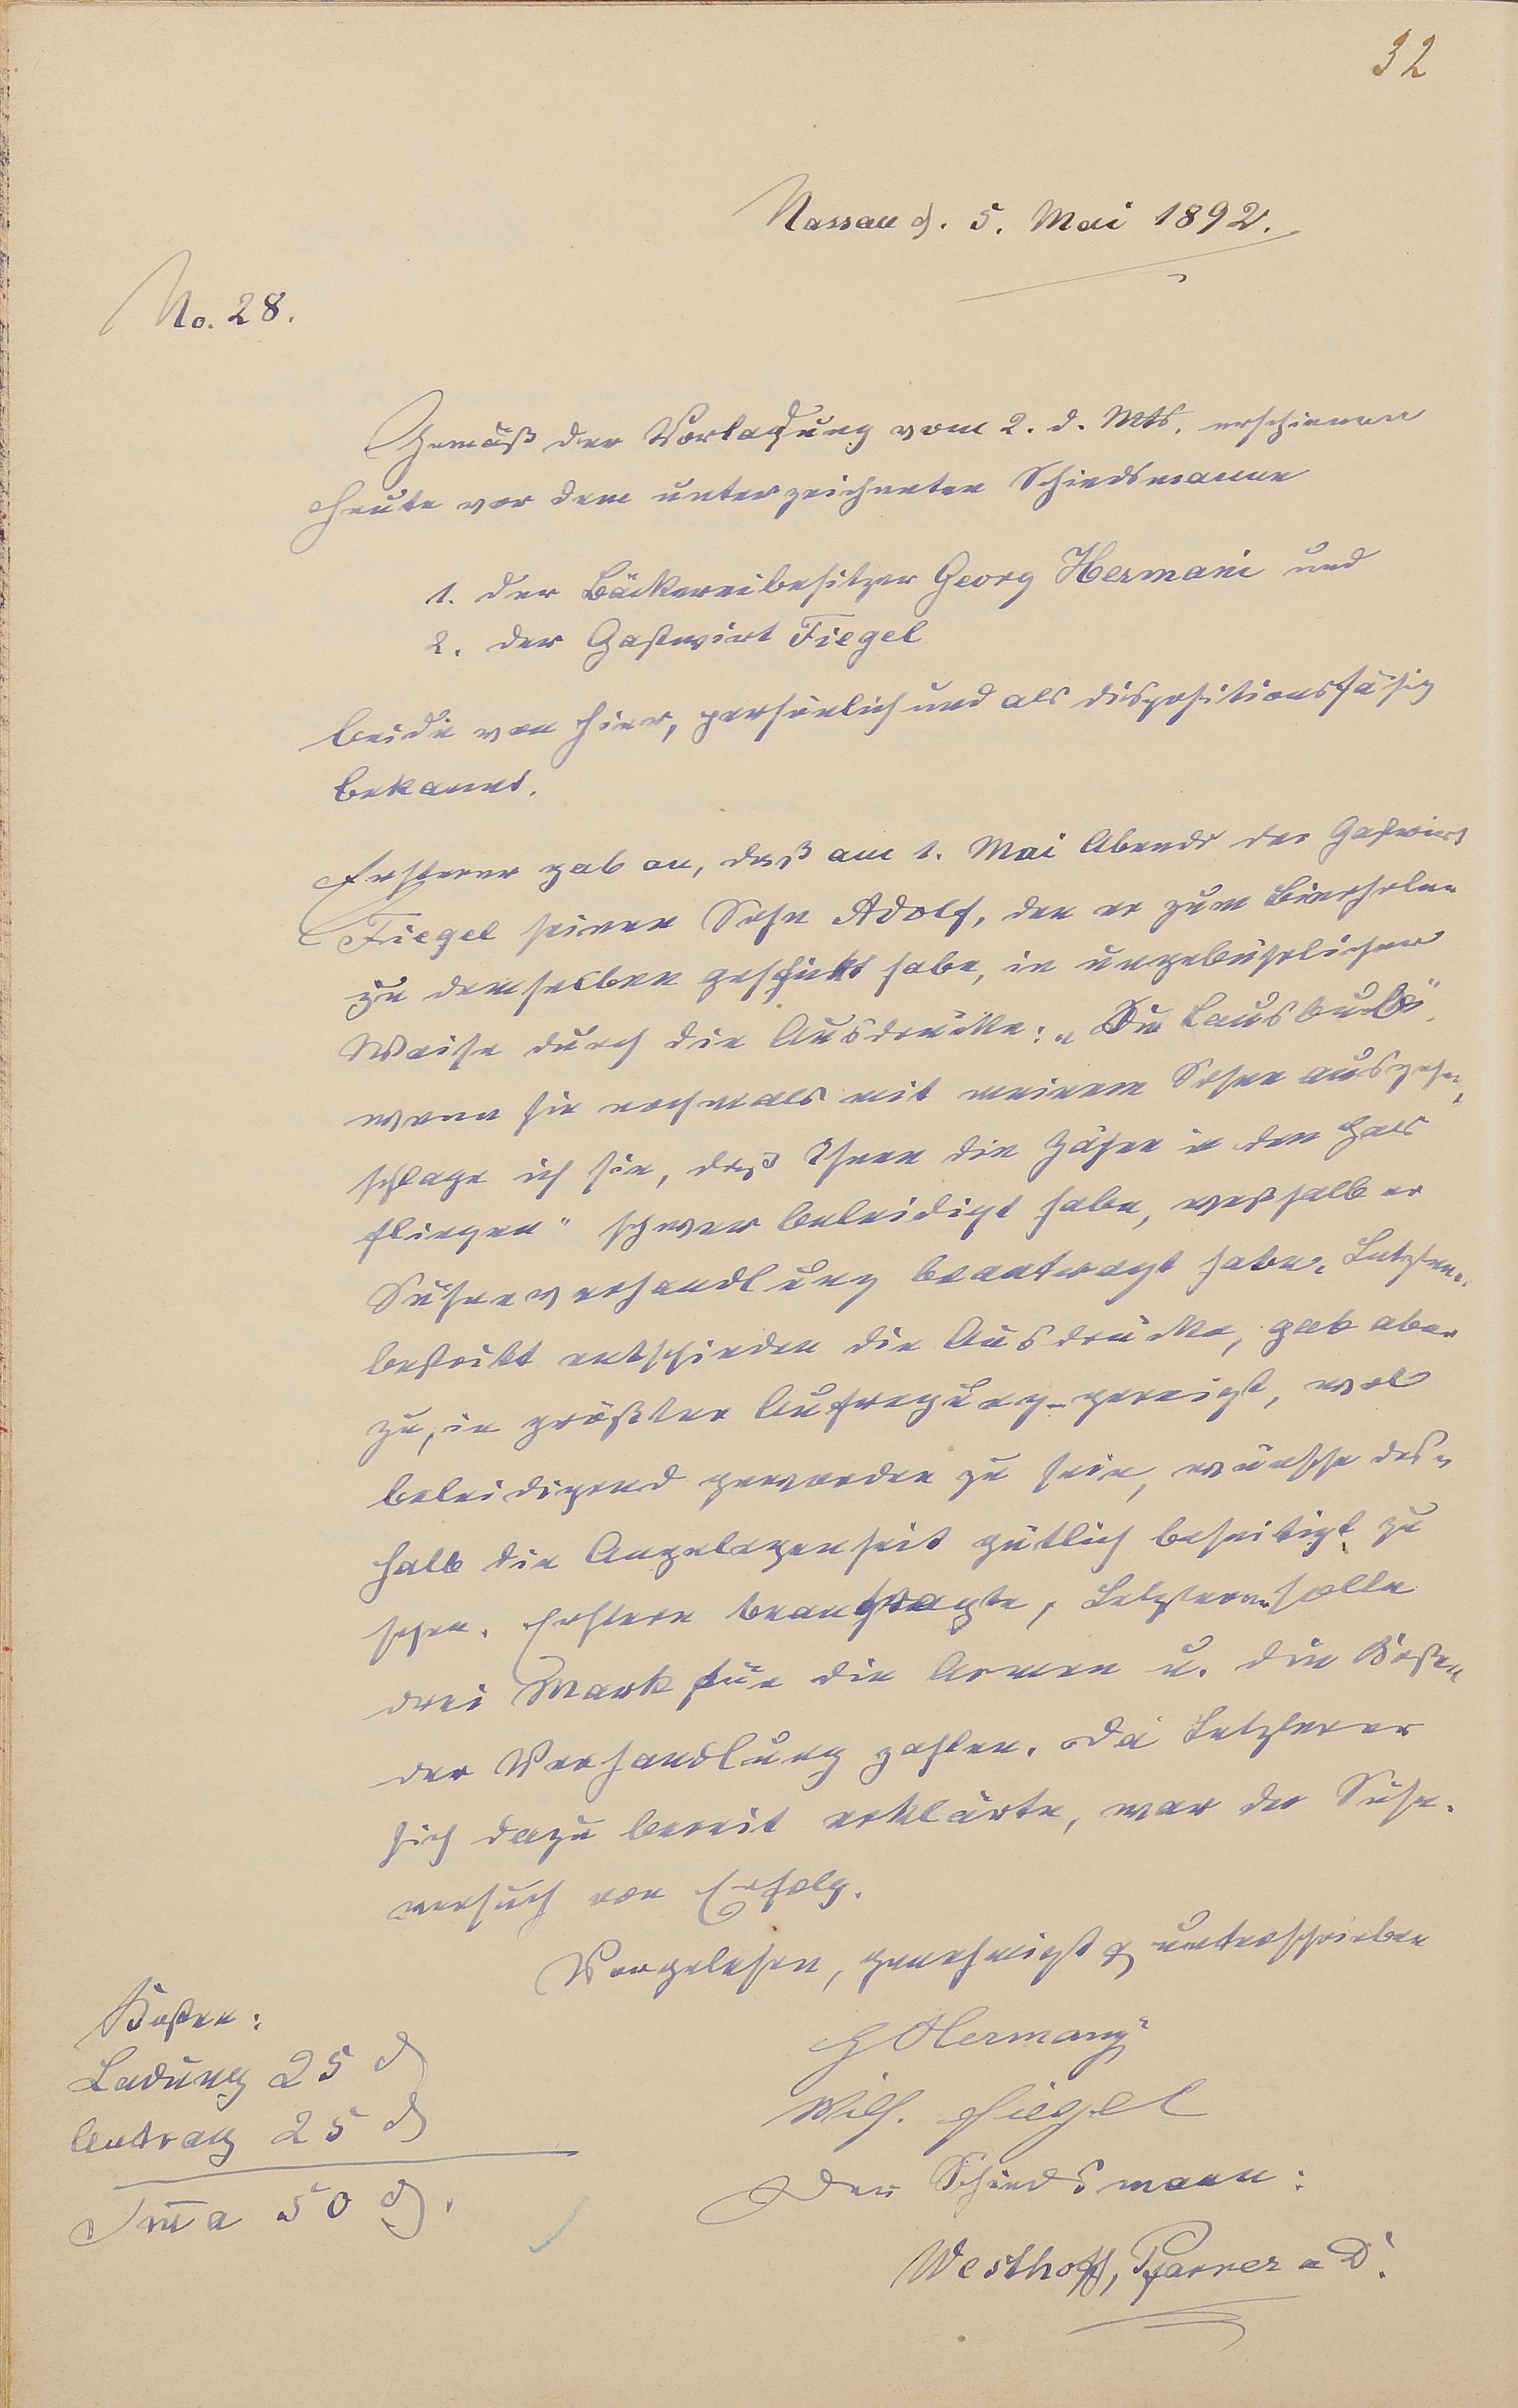 32
Nassau d. 5. Mai 1892.
No. 28.
Gemäß der Vorladung vom 2. d. Mts. erschienen
heute vor dem unterzeichneten Schiedsmanne
1. der Bäckereibesitzer Georg Hermani und
2. der Gastwirt Fiegel
beide von hier, persönlich und als dispositionsfähig
bekannt.
Ersterer gab an, daß am 1. Mai Abends der Gastwirt
Fiegel seinen Sohn Adolf, den er zum Bierholen
zu demselben geschickt habe, in ungebührlicher
Weise durch die Ausdrücke: „Du Lausbub",
wenn sie nochmals mit meinem Sohne ausgehen,
schlage ich sie, daß Ihnen die Zähne in den Hals
fliegen" schwer beleidigt habe, weshalb er
Sühneverhandlung beantragt habe. Letzterer
bestritt entschieden die Ausdrücke, gab aber
zu, in größter Aufregung gereizt, wol
beleidigend geworden zu sein, wünsche des-
halb die Angelegenheit gütlich beseitigt zu
sehen. Ersterer beantragte, Letzterer solle
drei Mark für die Armen u. die Kosten
der Verhandlung zahlen. Da Letzterer
sich dazu bereit erklärte, war der Sühne-
versuch von Erfolg.
Vorgelesen, genehmigt & unterschrieben
G Hermany
Wilh. Fiegel
Der Schiedsmann:
Westhoff, Pfarrer a D.
Kosten:
Ladung 25 ₰
Antrag 25 ₰
Sm̅a 50 ₰.